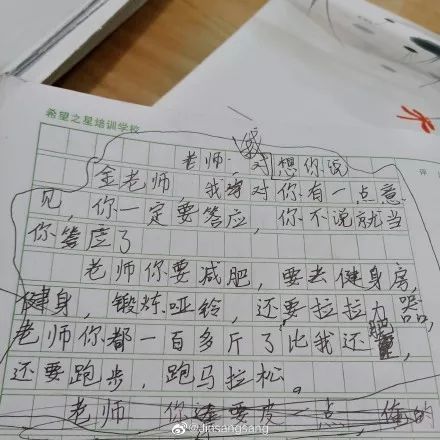 希望之星培训学校
老师，我对想你说
金老师，我对你有一点意
见，你一定要答应，你不说就当
你答应了
老师你要减肥，要去健身房，
健身，锻炼哑铃，还要拉拉力器，
老师你都一百多斤了比我还肥，
还要跑步，跑马拉松。
老师 你 要 一点，
@Jinsangsang